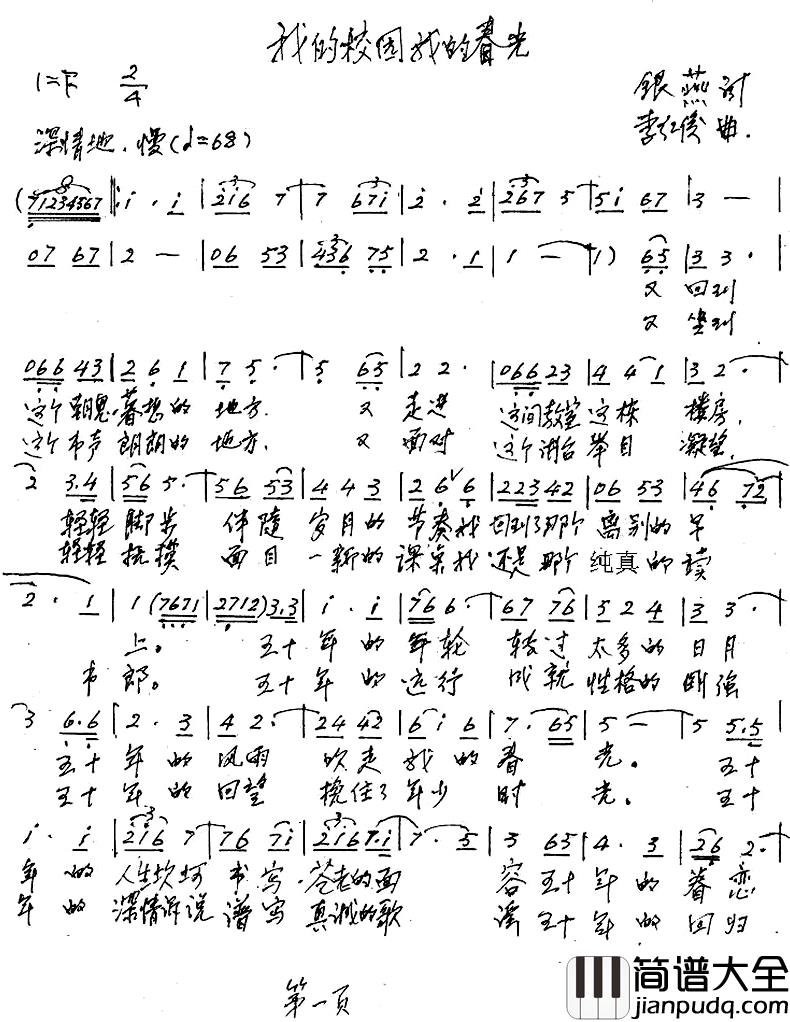 我的校园我的春光
1=F 2/4
銀燕 詞
李红俊 曲.
深情地.慢(♩=68)
(71234567 ‖: i · i | 2i6 7 | 7 67i | 2 · 2 | 267 5 | 5i 67 | 3 — |
07 67 | 2 — | 06 53 | 436 75 | 2 · 1 | 1 — | 1) 65 | 3 3 · |
又 回到
又 坐到
066 43 | 2 6 1 | 7 5 · | 5 65 | 2 2 · | 066 23 | 4 4 1 | 3 2 · |
这个朝思暮想的 地方. 又 走进 这间教室这栋 楼房,
这个书声朗朗的 地方. 又 面对 这个讲台举目 凝望,
2 3.4 | 56 5 · | 56 53 | 4 4 3 | 2 6 ∨ 6 | 223 42 | 06 53 | 46 72 |
轻轻 脚步 伴随 岁月的 节奏我 回到了那个 离别的早
轻轻 抚摸 面目 一新的 课桌我 还是那个 纯真的读
2 · 1 | 1 (7671 | 2712) 3.3 | i · i | 76 6 · | 67 76 | 5 2 4 | 3 3 · |
上。 五十 年 的 年轮 转过 太多的 日月
书 郎。 五十 年 的 远行 成就 性格的 刚强
3 6.6 | 2 · 3 | 4 2 · | 24 42 | 6 i 6 | 7 · 65 | 5 — | 5 5.5 |
五十 年 的 风雨 吹走 我 的 春 光。 五十
五十 年 的 回望 挽住了 年少 时 光。 五十
i · i | 2i6 7 | 76 7i | 2i6 7.i | 7 · 5 | 3 65 | 4 · 3 | 26 2 · |
年 的 人生坎坷 书写 苍老的面 容 五十 年 的 眷恋
年 的 深情诉说 谱写 真诚的歌 谣 五十 年 的 回归
第一页
简谱大全
jianpudq.com